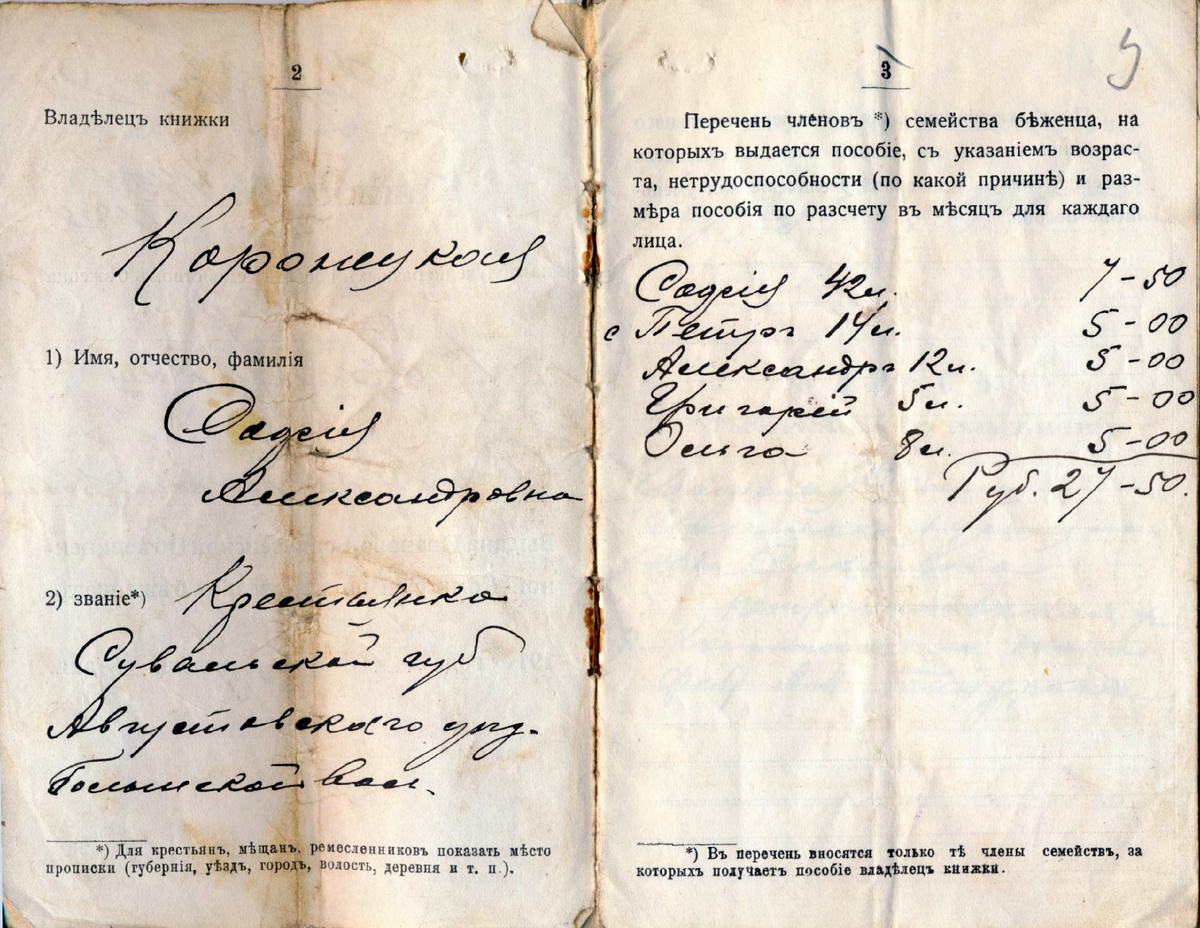 2
Владѣлецъ книжки
1) Имя, отчество, фамилія
Софія
Александровна
2) званіе*) Крестьянка
Сувальской губ
Августовскаго уѣзд.
вол.
*) Для крестьянъ, мѣщанъ, ремесленниковъ показать мѣсто
прописки (губернія, уѣздъ, городъ, волость, деревня и т. п.).
3
Перечень членовъ *) семейства бѣженца, на
которыхъ выдается пособіе, съ указаніемъ возрас-
та, нетрудоспособности (по какой причинѣ) и раз-
мѣра пособія по разсчету въ мѣсяцъ для каждаго
лица.
Софія 42 л. 7-50
с Петръ 14 л. 5-00
Александръ 12 л. 5-00
Григорій 5 л. 5-00
Ольга 8 л. 5-00
Руб. 27-50.
*) Въ перечень вносятся только тѣ члены семействъ, за
которыхъ получаетъ пособіе владѣлецъ книжки.